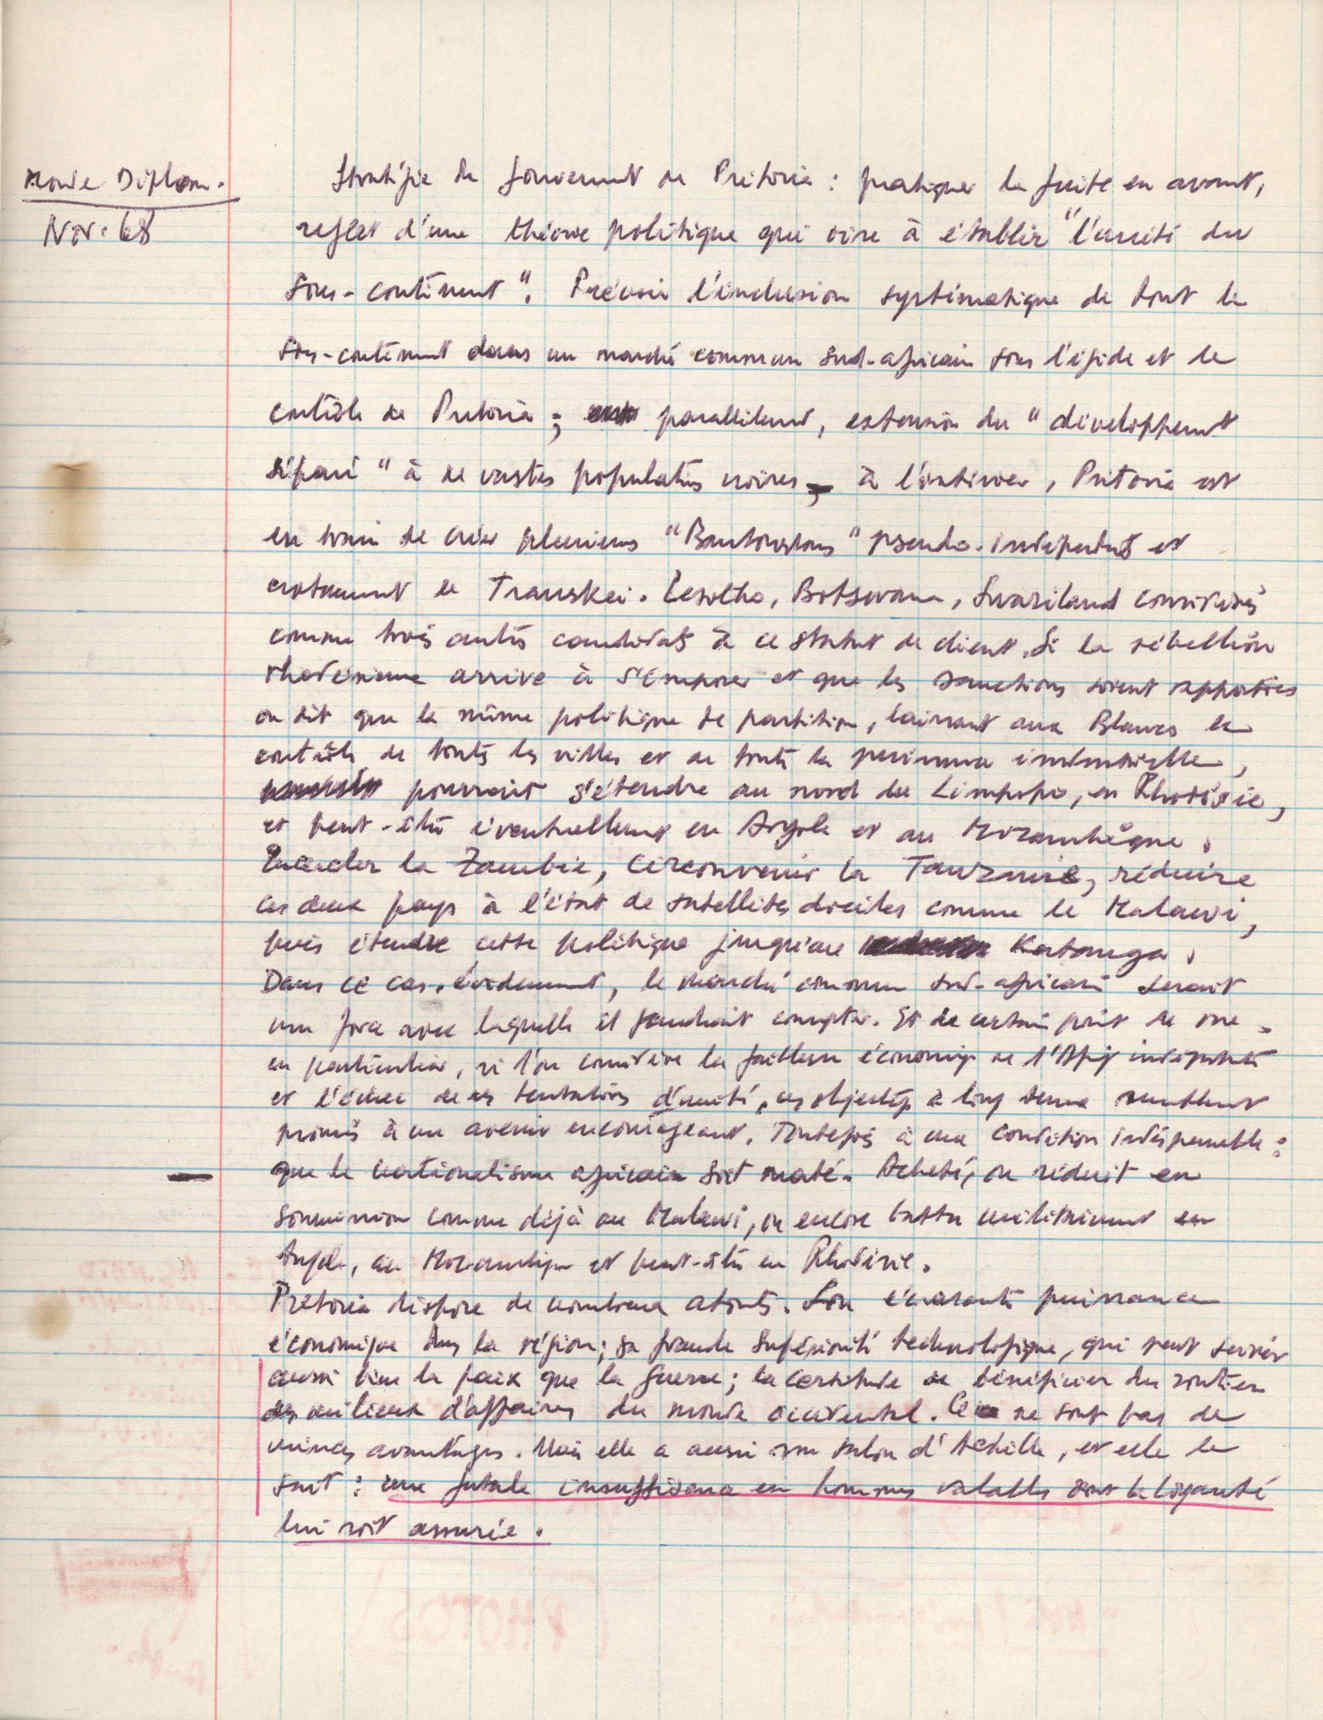 Monde Diplom.
Nov. 68
Stratégie du gouvernement de Pretoria : pratiquer la fuite en avant,
reflet d'une théorie politique qui vise à établir "l'unité du
sous-continent". Prévoir l'inclusion systématique de tout le
sous-continent dans un marché commun sud-africain sous l'égide et le
contrôle de Pretoria ; parallèlement, extension du "développement
séparé" à de vastes populations noires, à l'intérieur, Pretoria est
en train de créer plusieurs "Bantoustans" pseudo-indépendants et
notamment le Transkei. Lesotho, Botswana, Swaziland considérés
comme trois autres candidats à ce statut de client. Si la rébellion
rhodésienne arrive à s'imposer et que les sanctions soient rapportées
on dit que la même politique de partition, laissant aux Blancs le
contrôle de toutes les villes et de toute la puissance industrielle,
pourrait s'étendre au nord du Limpopo, en Rhodésie,
et peut-être éventuellement en Angola et au Mozambique.
la Zambie, circonvenir la Tanzanie, réduire
ces deux pays à l'état de satellites dociles comme le Malawi,
puis étendre cette politique jusqu'au Katanga.
Dans ce cas, évidemment, le marché commun sud-africain serait
une force avec laquelle il faudrait compter. Et de certain point de vue
en particulier, si l'on considère la faiblesse économiq de l'Afriq indépendte
et l'échec de ses tentatives d'unité, ces objectifs à long terme semblent
promis à un avenir encourageant. Toutefois à une condition indispensable :
que le nationalisme africain soit maté. Acheté, ou réduit en
soumission comme déjà au Malawi, ou encore battu militairement en
Angola, au Mozambique et peut-être en Rhodésie.
Pretoria dispose de nombreux atouts. Son écrasante puissance
économique dans la région ; sa grande supériorité technologique, qui peut servir
aussi bien la paix que la guerre ; la certitude de bénéficier du soutien
des milieux d'affaires du monde occidental. Ce ne sont pas de
minces avantages. Mais elle a aussi son talon d'Achille, et elle le
sait : une fatale insuffisance en hommes valables dont la loyauté
lui soit assurée.
(PHOTOS)